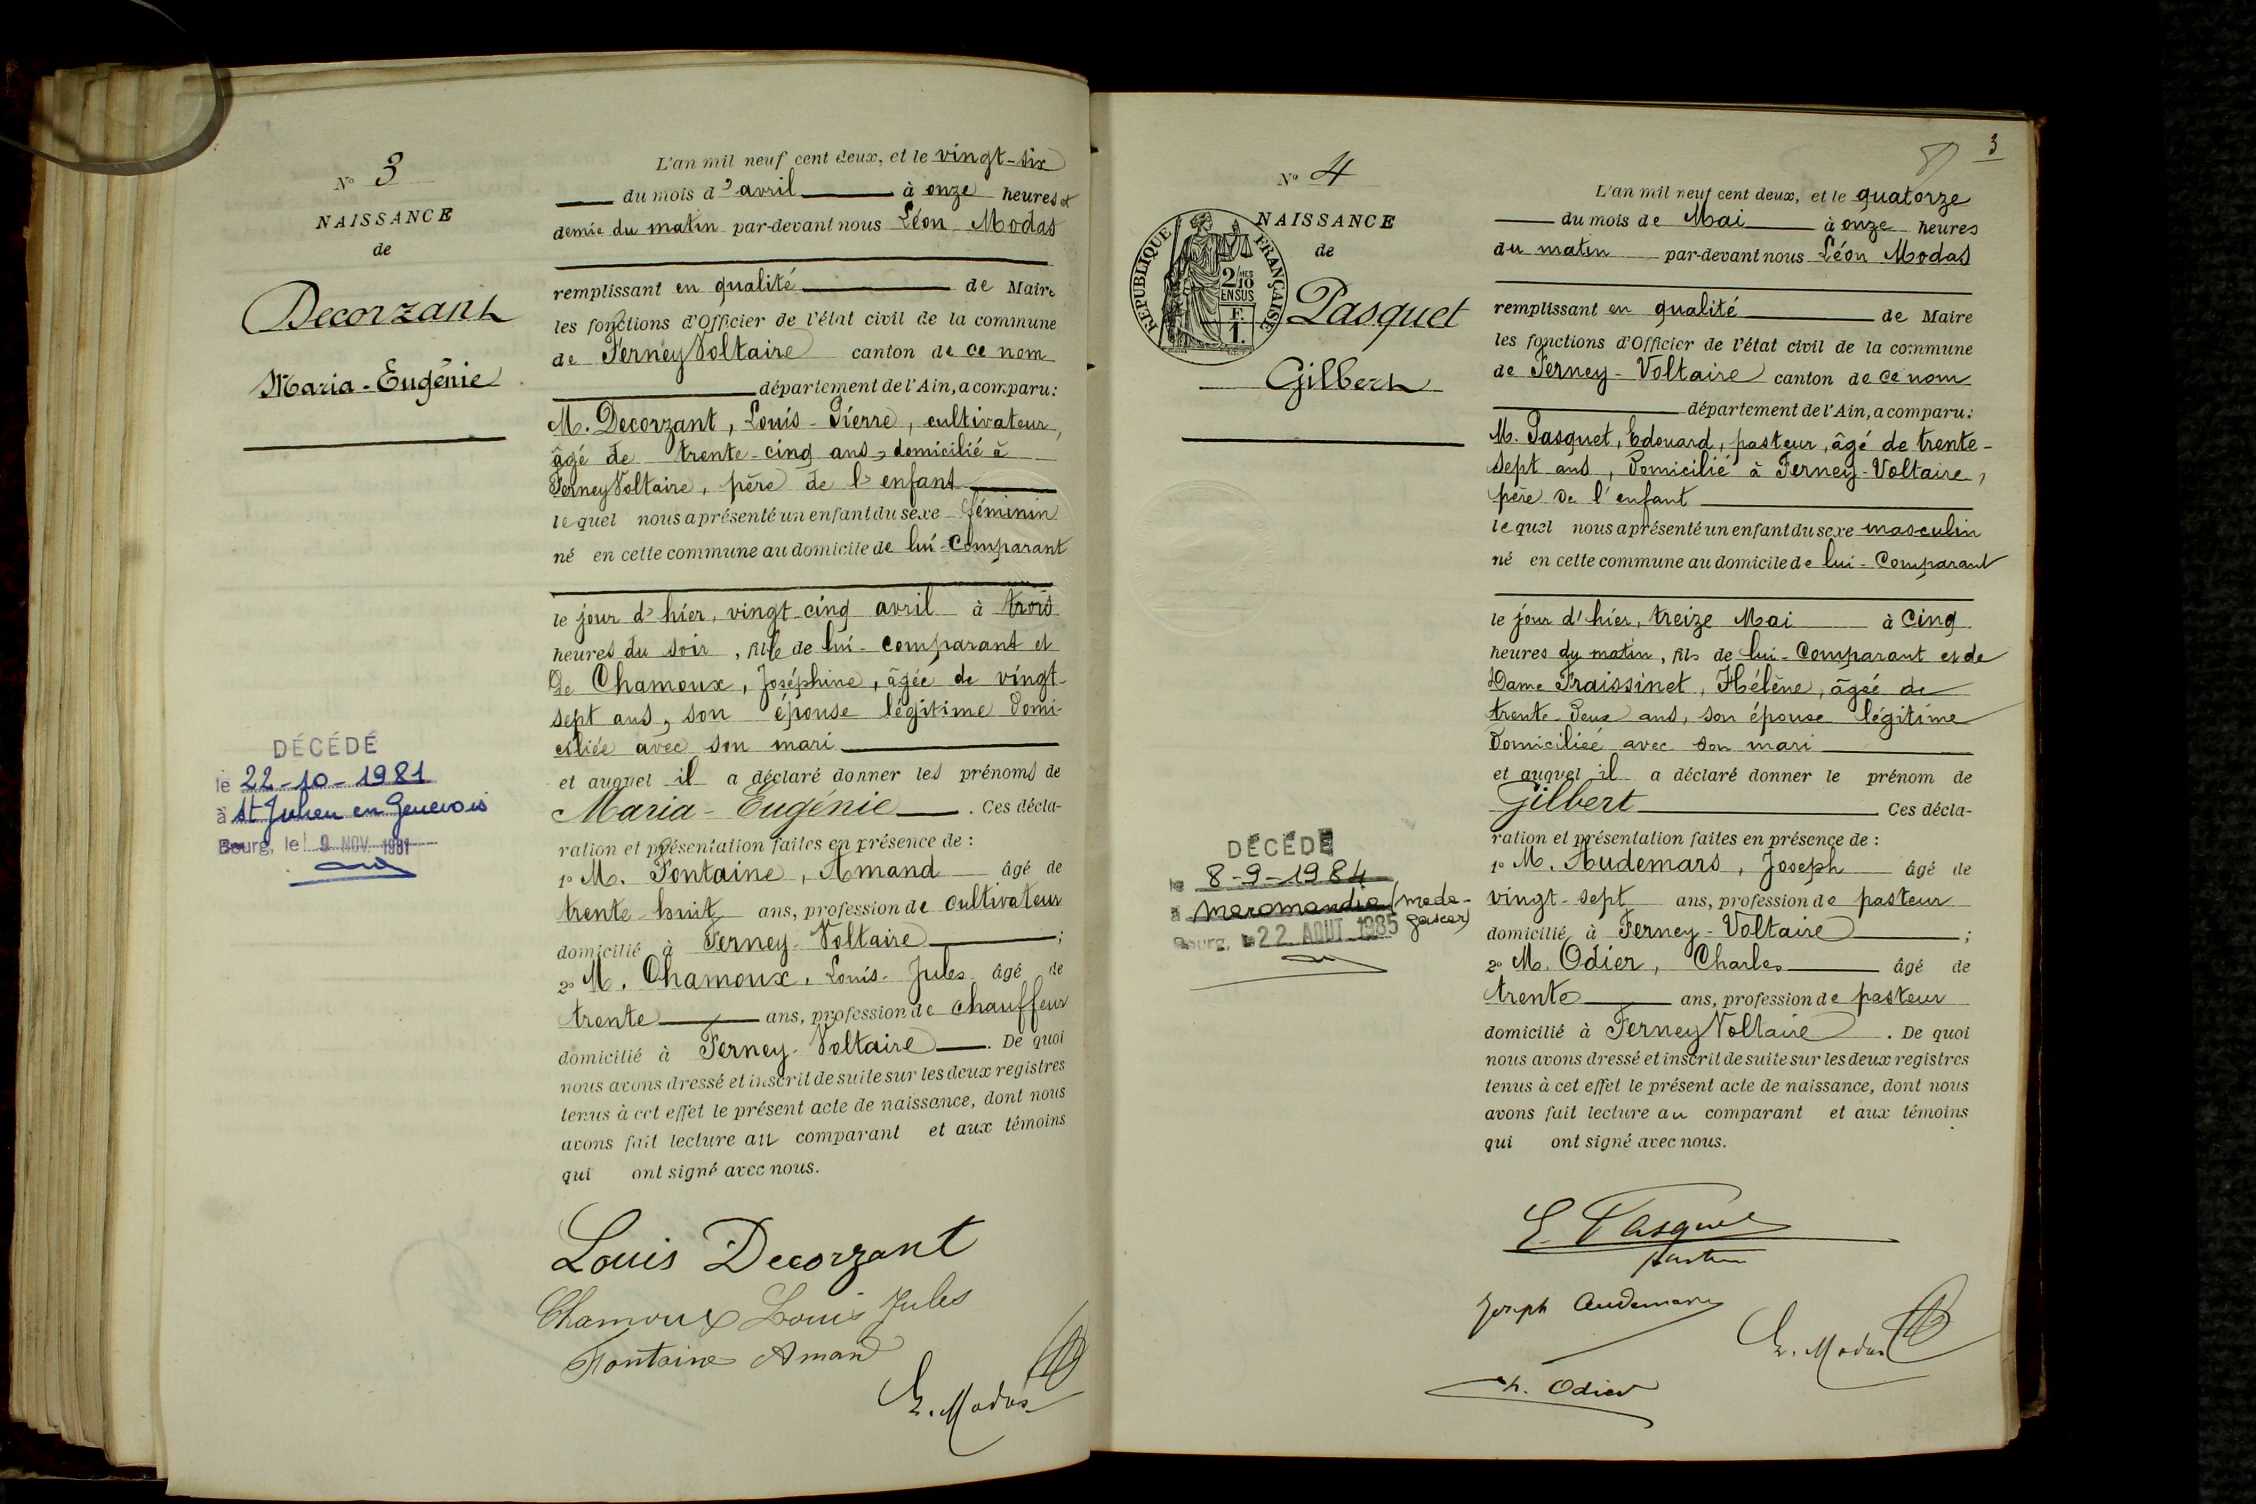 N° 3
NAISSANCE
de
Decorzant
Maria-Eugénie
DÉCÉDÉ
le 22-10-1981
à St Julien en Genevois
Bourg, le 9 NOV. 1981
L'an mil neuf cent deux, et le vingt-six
du mois d'avril à onze heures et
demie du matin par-devant nous Léon Modas
remplissant en qualité de Maire
les fonctions d'Officier de l'état civil de la commune
de Ferney Voltaire canton de ce nom
département de l'Ain, a comparu:
M. Decorzant, Louis-Pierre, cultivateur,
âgé de trente-cinq ans, domicilié à
Ferney Voltaire, père de l'enfant
lequel nous a présenté un enfant du sexe féminin
né en cette commune au domicile de lui-Comparant
le jour d'hier, vingt-cinq avril à trois
heures du soir, fille de lui-Comparant et
De Chamoux, Joséphine, âgée de vingt-
sept ans, son épouse légitime domi-
ciliée avec son mari
et auquel il a déclaré donner les prénoms de
Maria-Eugénie. Ces décla-
ration et présentation faites en présence de :
1° M. Fontaine, Amand âgé de
trente-huit ans, profession de cultivateur
domicilié à Ferney-Voltaire ;
2° M. Chamoux, Louis-Jules âgé de
trente ans, profession de chauffeur
domicilié à Ferney-Voltaire. De quoi
nous avons dressé et inscrit de suite sur les deux registres
tenus à cet effet le présent acte de naissance, dont nous
avons fait lecture au comparant et aux témoins
qui ont signé avec nous.
Louis Decorzant
Chamoux Louis Jules
Fontaine Amand
L. Modas
3
N° 4
NAISSANCE
de
REPUBLIQUE FRANÇAISE
2/10 EN SUS
F.
1.
Pasquet
Gilbert
DÉCÉDÉ
le 8-9-1984
à Maromandia (Mada-
gascar)
Bourg, le 22 AOUT 1985
L'an mil neuf cent deux, et le quatorze
du mois de Mai à onze heures
du matin par-devant nous Léon Modas
remplissant en qualité de Maire
les fonctions d'Officier de l'état civil de la commune
de Ferney-Voltaire canton de ce nom
département de l'Ain, a comparu:
M. Pasquet, Edouard, pasteur, âgé de trente-
sept ans, Domicilié à Ferney-Voltaire,
père de l'enfant
lequel nous a présenté un enfant du sexe masculin
né en cette commune au domicile de lui-Comparant
le jour d'hier, treize Mai à Cinq
heures du matin, fils de lui-Comparant et de
Dame Fraissinet, Hélène, âgée de
trente-Deux ans, son épouse légitime
Domiciliée avec son mari
et auquel il a déclaré donner le prénom de
Gilbert Ces décla-
ration et présentation faites en présence de :
1° M. Audemars, Joseph âgé de
vingt-sept ans, profession de pasteur
domicilié à Ferney-Voltaire ;
2° M. Odier, Charles âgé de
trente ans, profession de pasteur
domicilié à Ferney Voltaire. De quoi
nous avons dressé et inscrit de suite sur les deux registres
tenus à cet effet le présent acte de naissance, dont nous
avons fait lecture au comparant et aux témoins
qui ont signé avec nous.
E. Pasquet
pasteur
Joseph Audemars
L. Modas
Ch. Odier